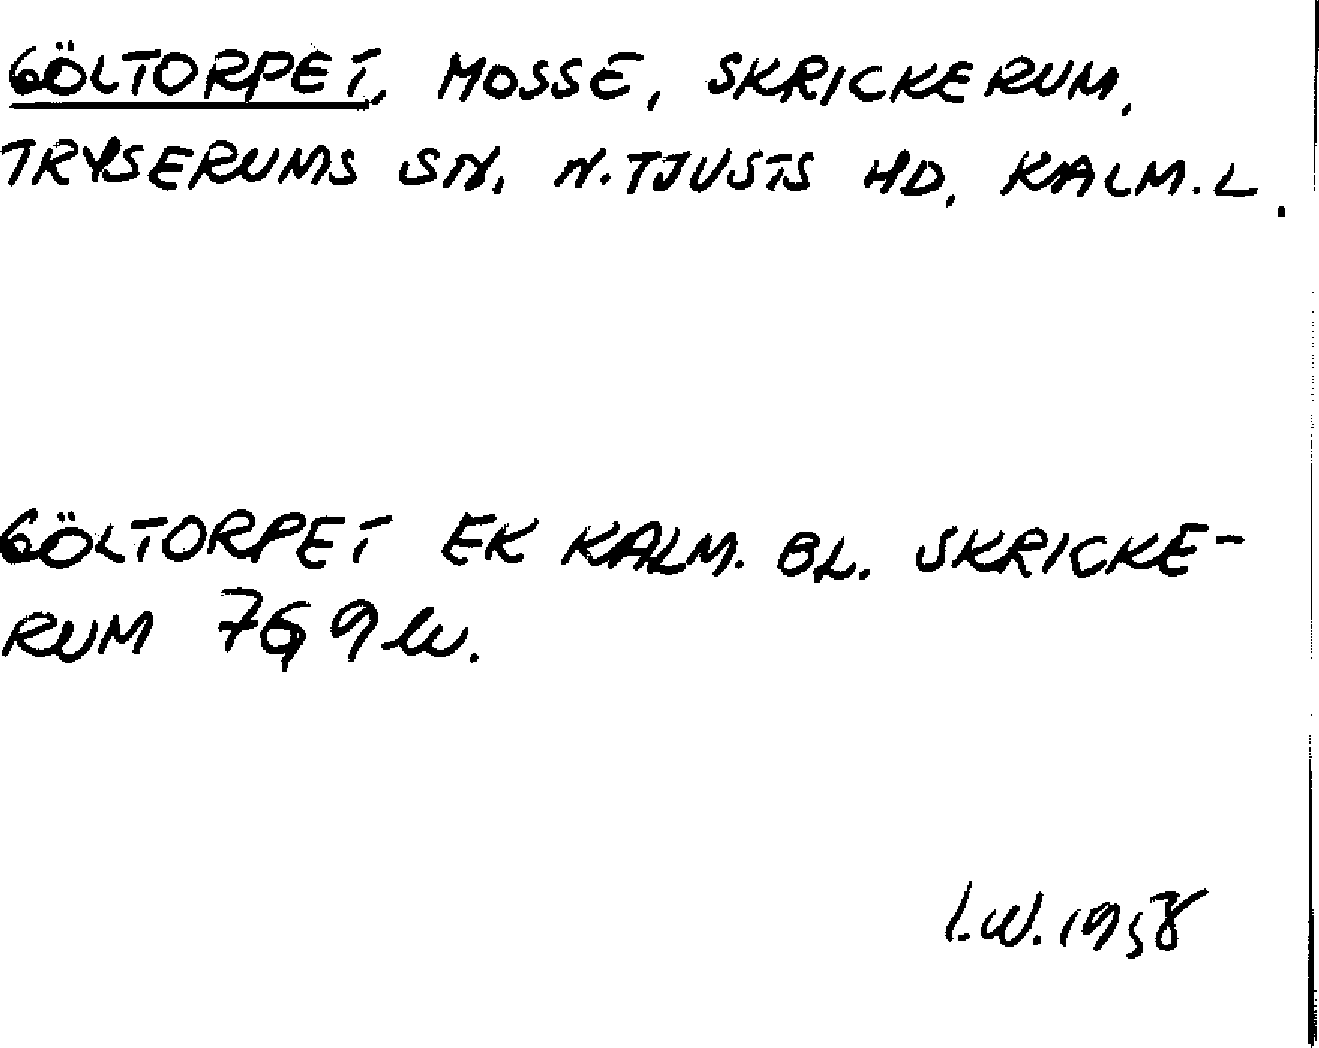 GÖLTORPET, MOSSE, SKRICKERUM,
TRYSERUMS SN, N.TJUSTS HD, KALM.L.
GÖLTORPET EK KALM. BL. SKRICKE-
RUM 7G9
I.W. 1958